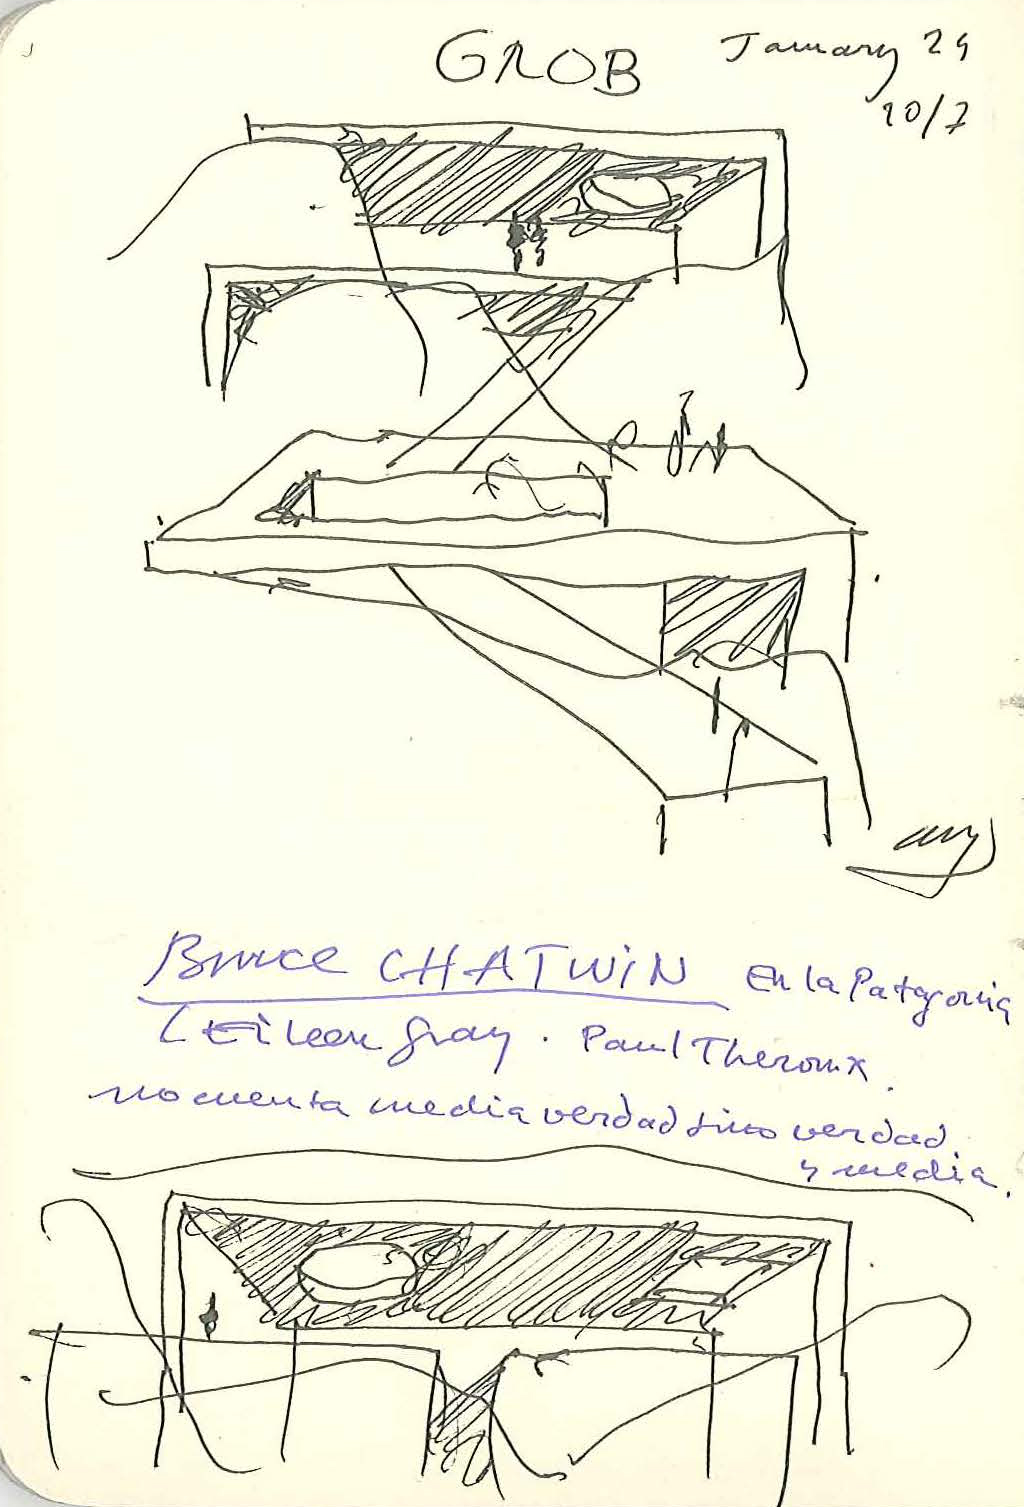 GROB
January 29
2017
Bruce CHATWIN En la Patagonia
Eileen Gray. Paul Theroux.
no cuenta media verdad sino verdad
y media.